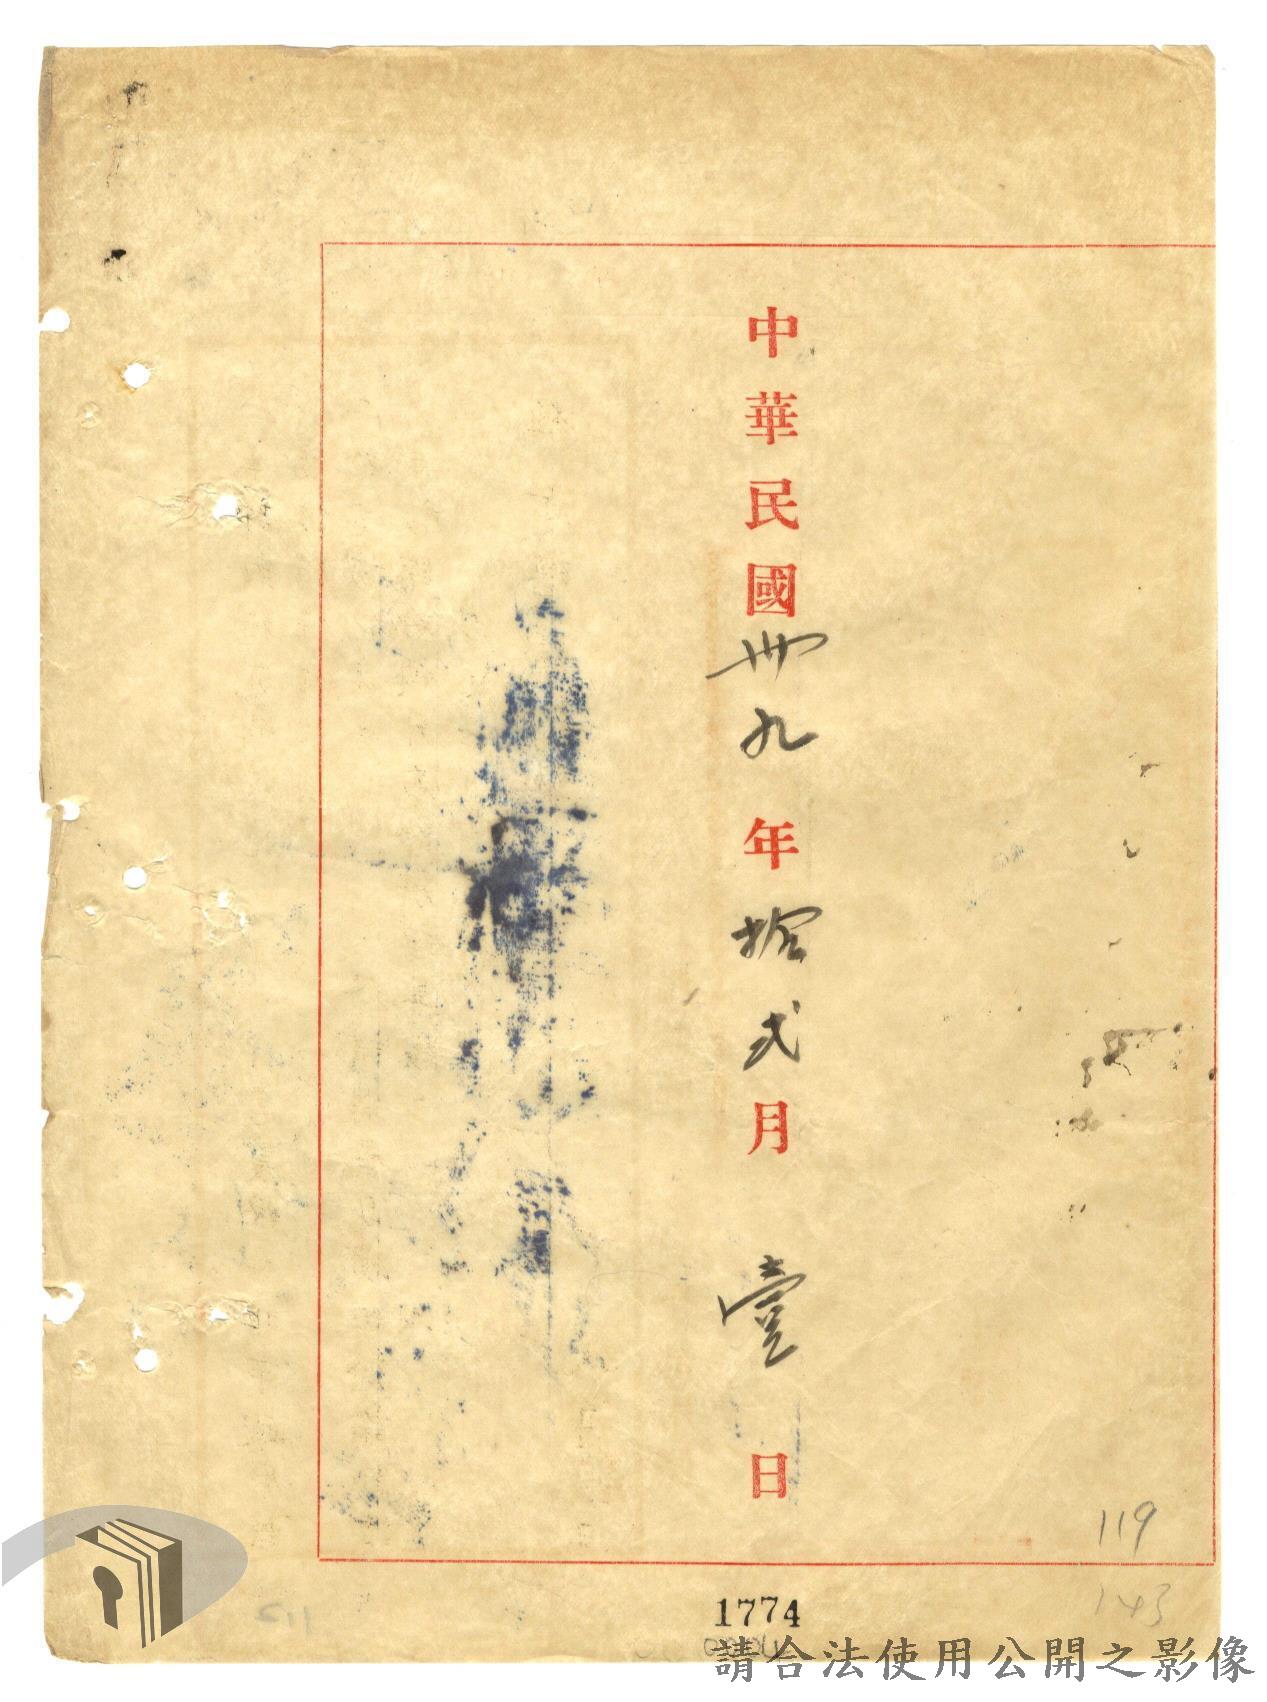 中華民國卅九年拾弍月壹日
119
143
1774
請合法使用公開之影像